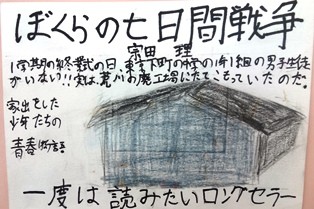 ぼくらの七日間戦争
宗田 理
1学期の終業式の日、東京下町の中学の1年1組の男子生徒
がいない!!実は、荒川の廃工場にたてこもっていたのだ。
家出をした
少年たちの
青春
一度は読みたいロングセラー